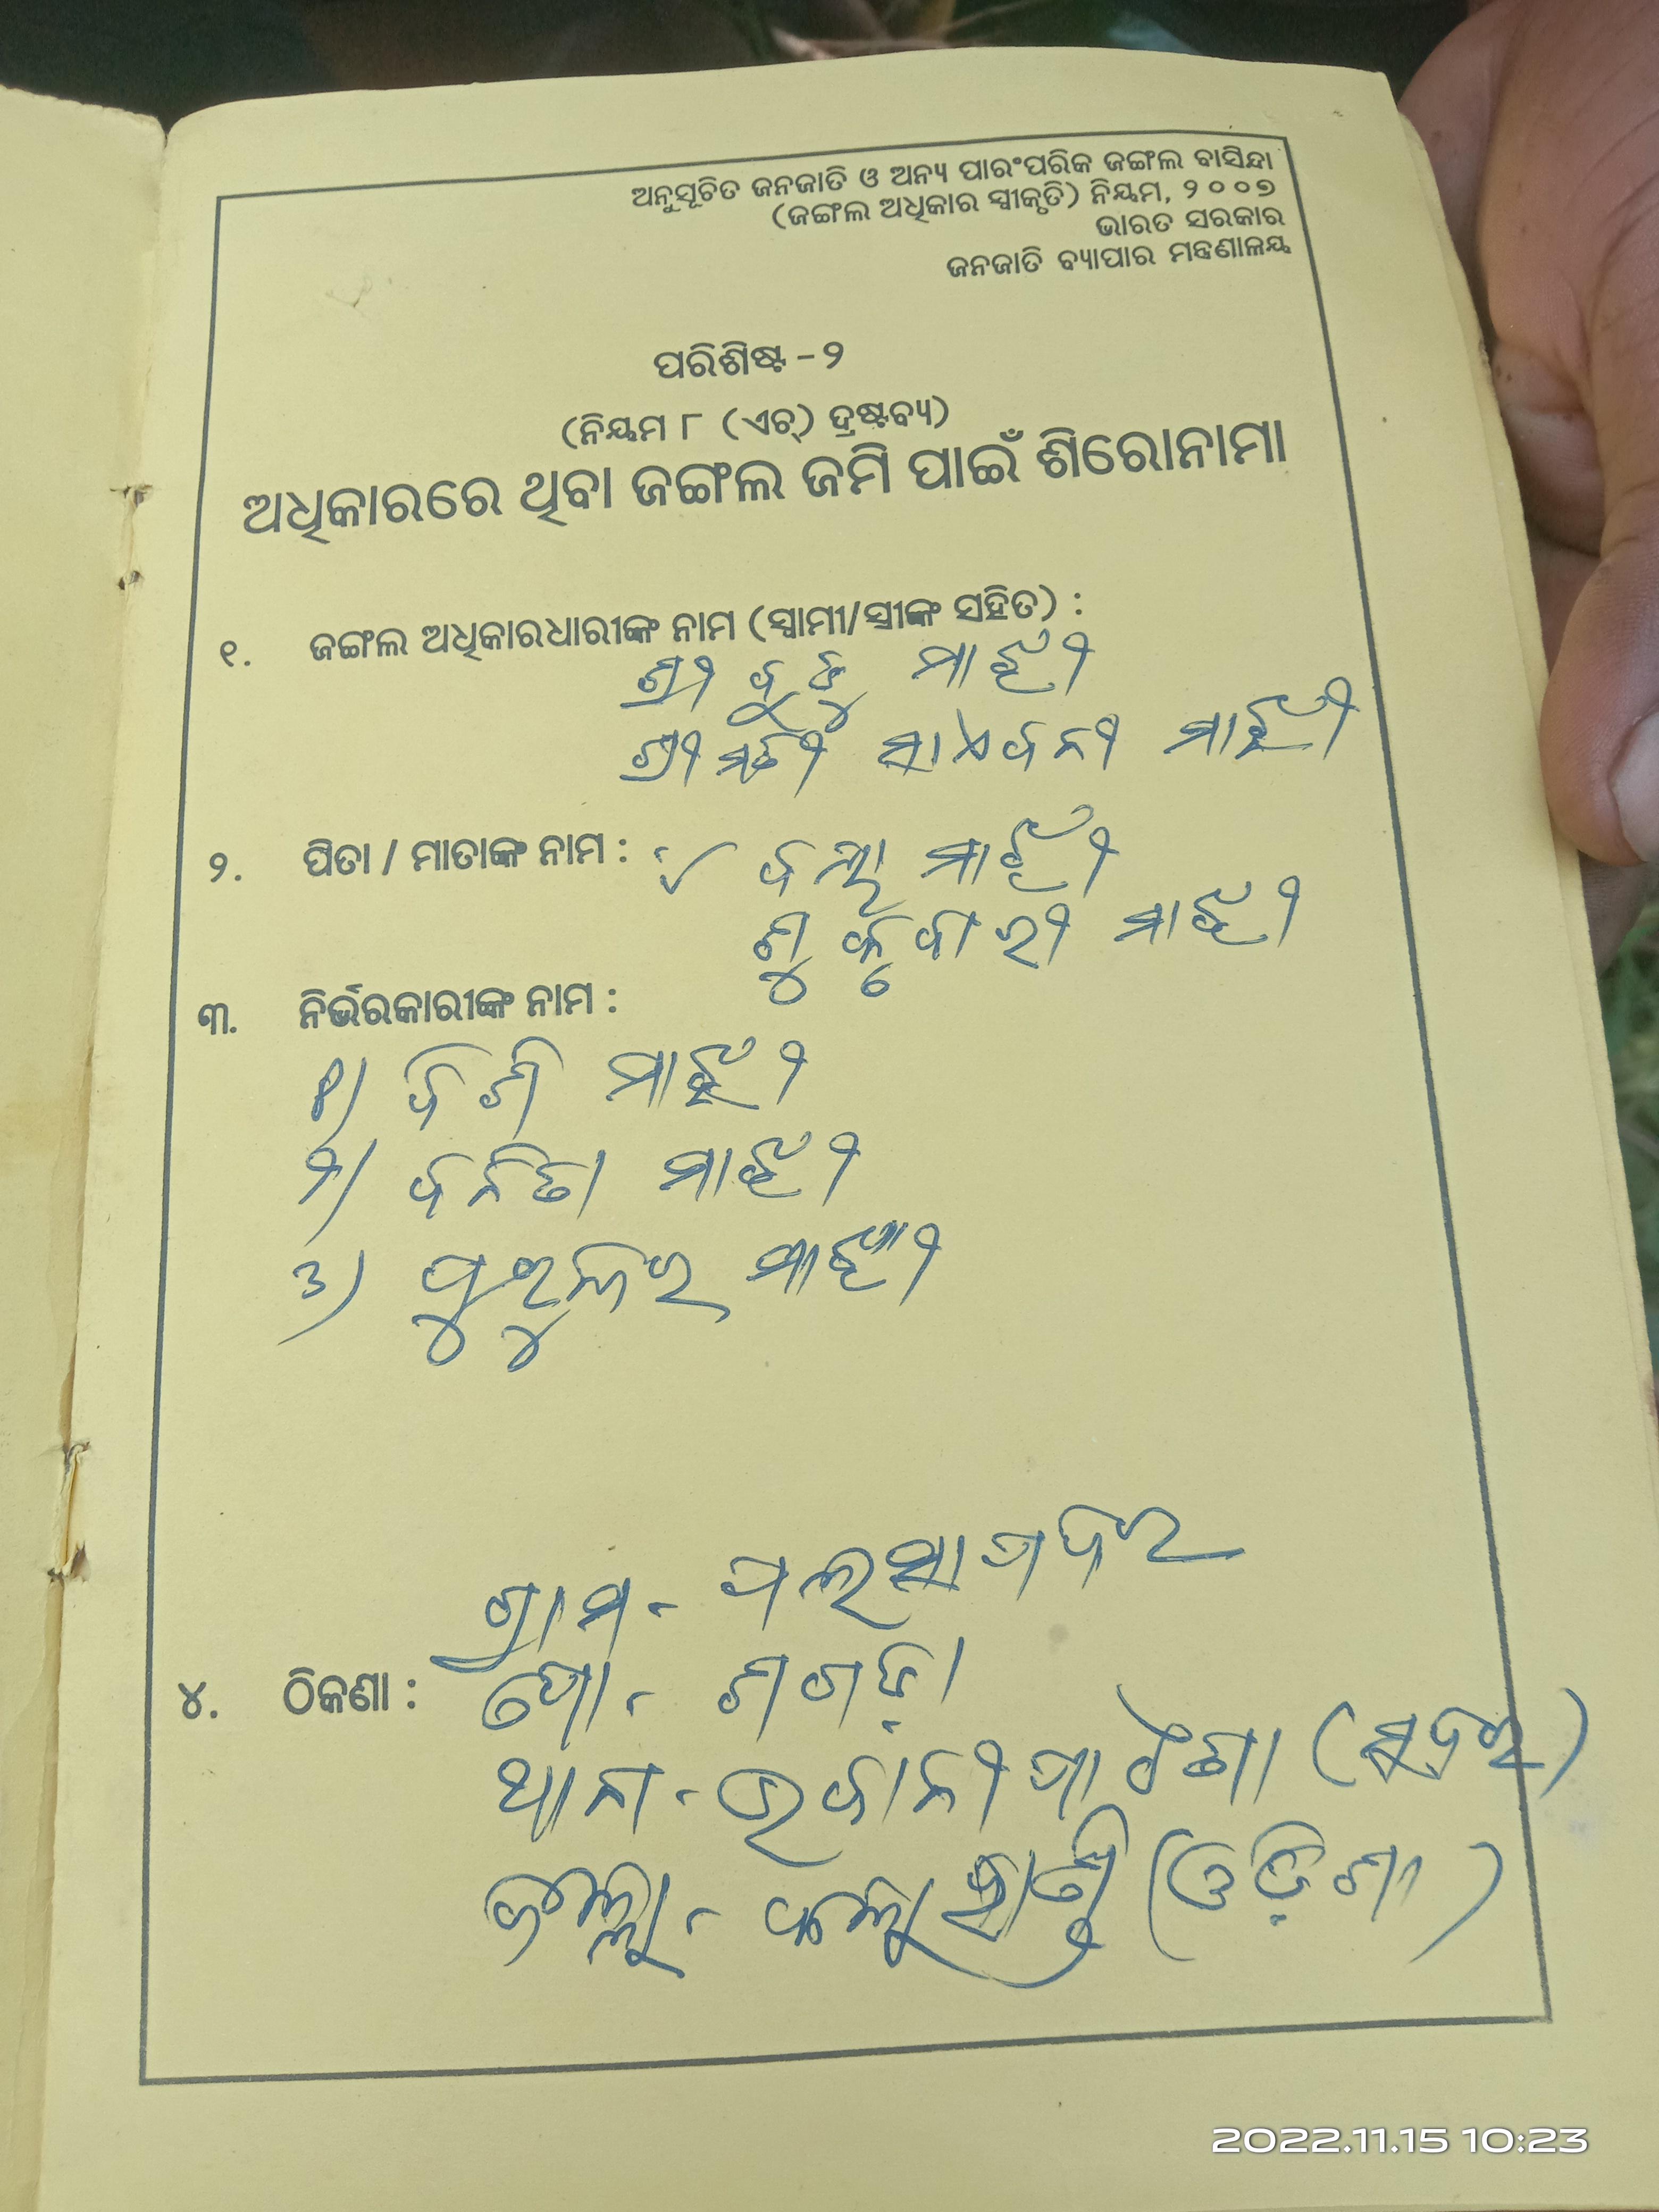 ଅନୁସୂଚିତ ଜନଜାତି ଓ ଅନ୍ୟ ପାରଂପରିକ ଜଙ୍ଗଲ ବାସିନ୍ଦା
(ଜଙ୍ଗଲ ଅଧିକାର ସ୍ୱୀକୃତି) ନିୟମ, ୨୦୦୭
ଭାରତ ସରକାର
ଜନଜାତି ବ୍ୟାପାର ମନ୍ତ୍ରଣାଳୟ
ପରିଶିଷ୍ଟ - ୨
(ନିୟମ ୮ (ଏଚ୍) ଦ୍ରଷ୍ଟବ୍ୟ)
ଅଧିକାରରେ ଥିବା ଜଙ୍ଗଲ ଜମି ପାଇଁ ଶିରୋନାମା
୧. ଜଙ୍ଗଲ ଅଧିକାରଧାରୀଙ୍କ ନାମ (ସ୍ୱାମୀ/ସ୍ତ୍ରୀଙ୍କ ସହିତ) :
ଶ୍ରୀ ମାଝୀ
ଶ୍ରୀମତୀ ମାଝୀ
୨. ପିତା / ମାତାଙ୍କ ନାମ : ମାଝୀ
ମାଝୀ
୩. ନିର୍ଭରକାରୀଙ୍କ ନାମ :
୧) ମାଝୀ
୨) ବନିତା ମାଝୀ
୩) ମାଝୀ
ଗ୍ରାମ -
୪. ଠିକଣା : ପୋ - ଶଗଡ଼ା
ଥାନା - ଭବାନୀପାଟଣା (ସଦର)
ଜିଲ୍ଲା - କଳାହାଣ୍ଡି (ଓଡ଼ିଶା)
2022.11.15 10:23